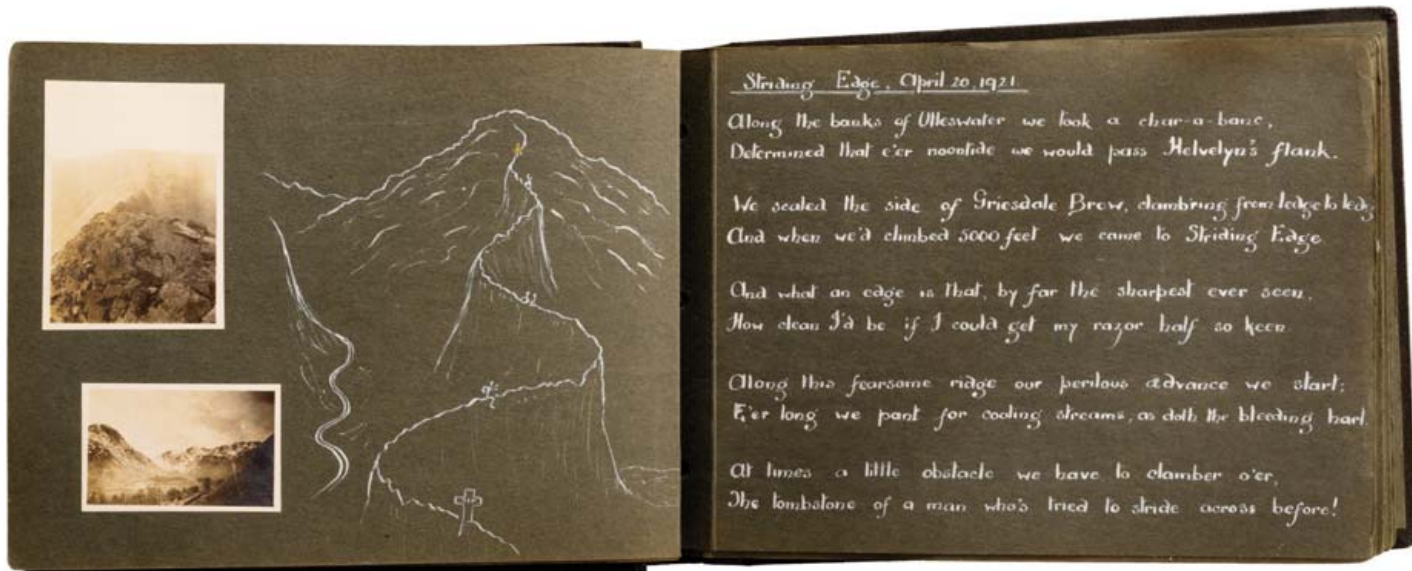 Striding Edge, April 20, 1921.
Along the banks of Ulleswater we took a char-a-banc,
Determined that e'er noontide we would pass Helvelyn's flank.
We scaled the side of Griesdale Brow, clambring from ledge to ledge
And when we'd climbed 5000 feet we came to Striding Edge
And what an edge is that, by far the sharpest ever seen,
How clean I'd be if I could get my razor half so keen.
Along this fearsome ridge our perilous advance we start;
E'er long we pant for cooling streams, as doth the bleeding hart.
At times a little obstacle we have to clamber o'er,
The tombstone of a man who's tried to stride across before!